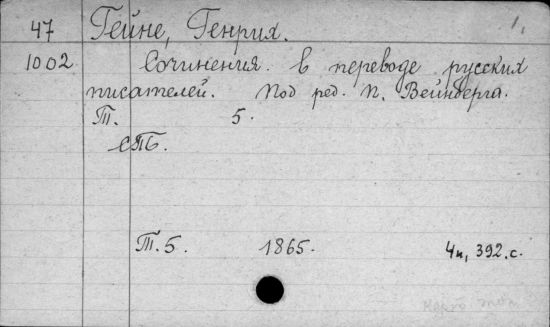 47 Гейне, Генрих. 1.
1002 Сочинения. в переводе русских
писателей. Под ред. П. Вейнберга.
Т. 5.
СПБ.
Т. 5. 1865. 4н, 392.с.